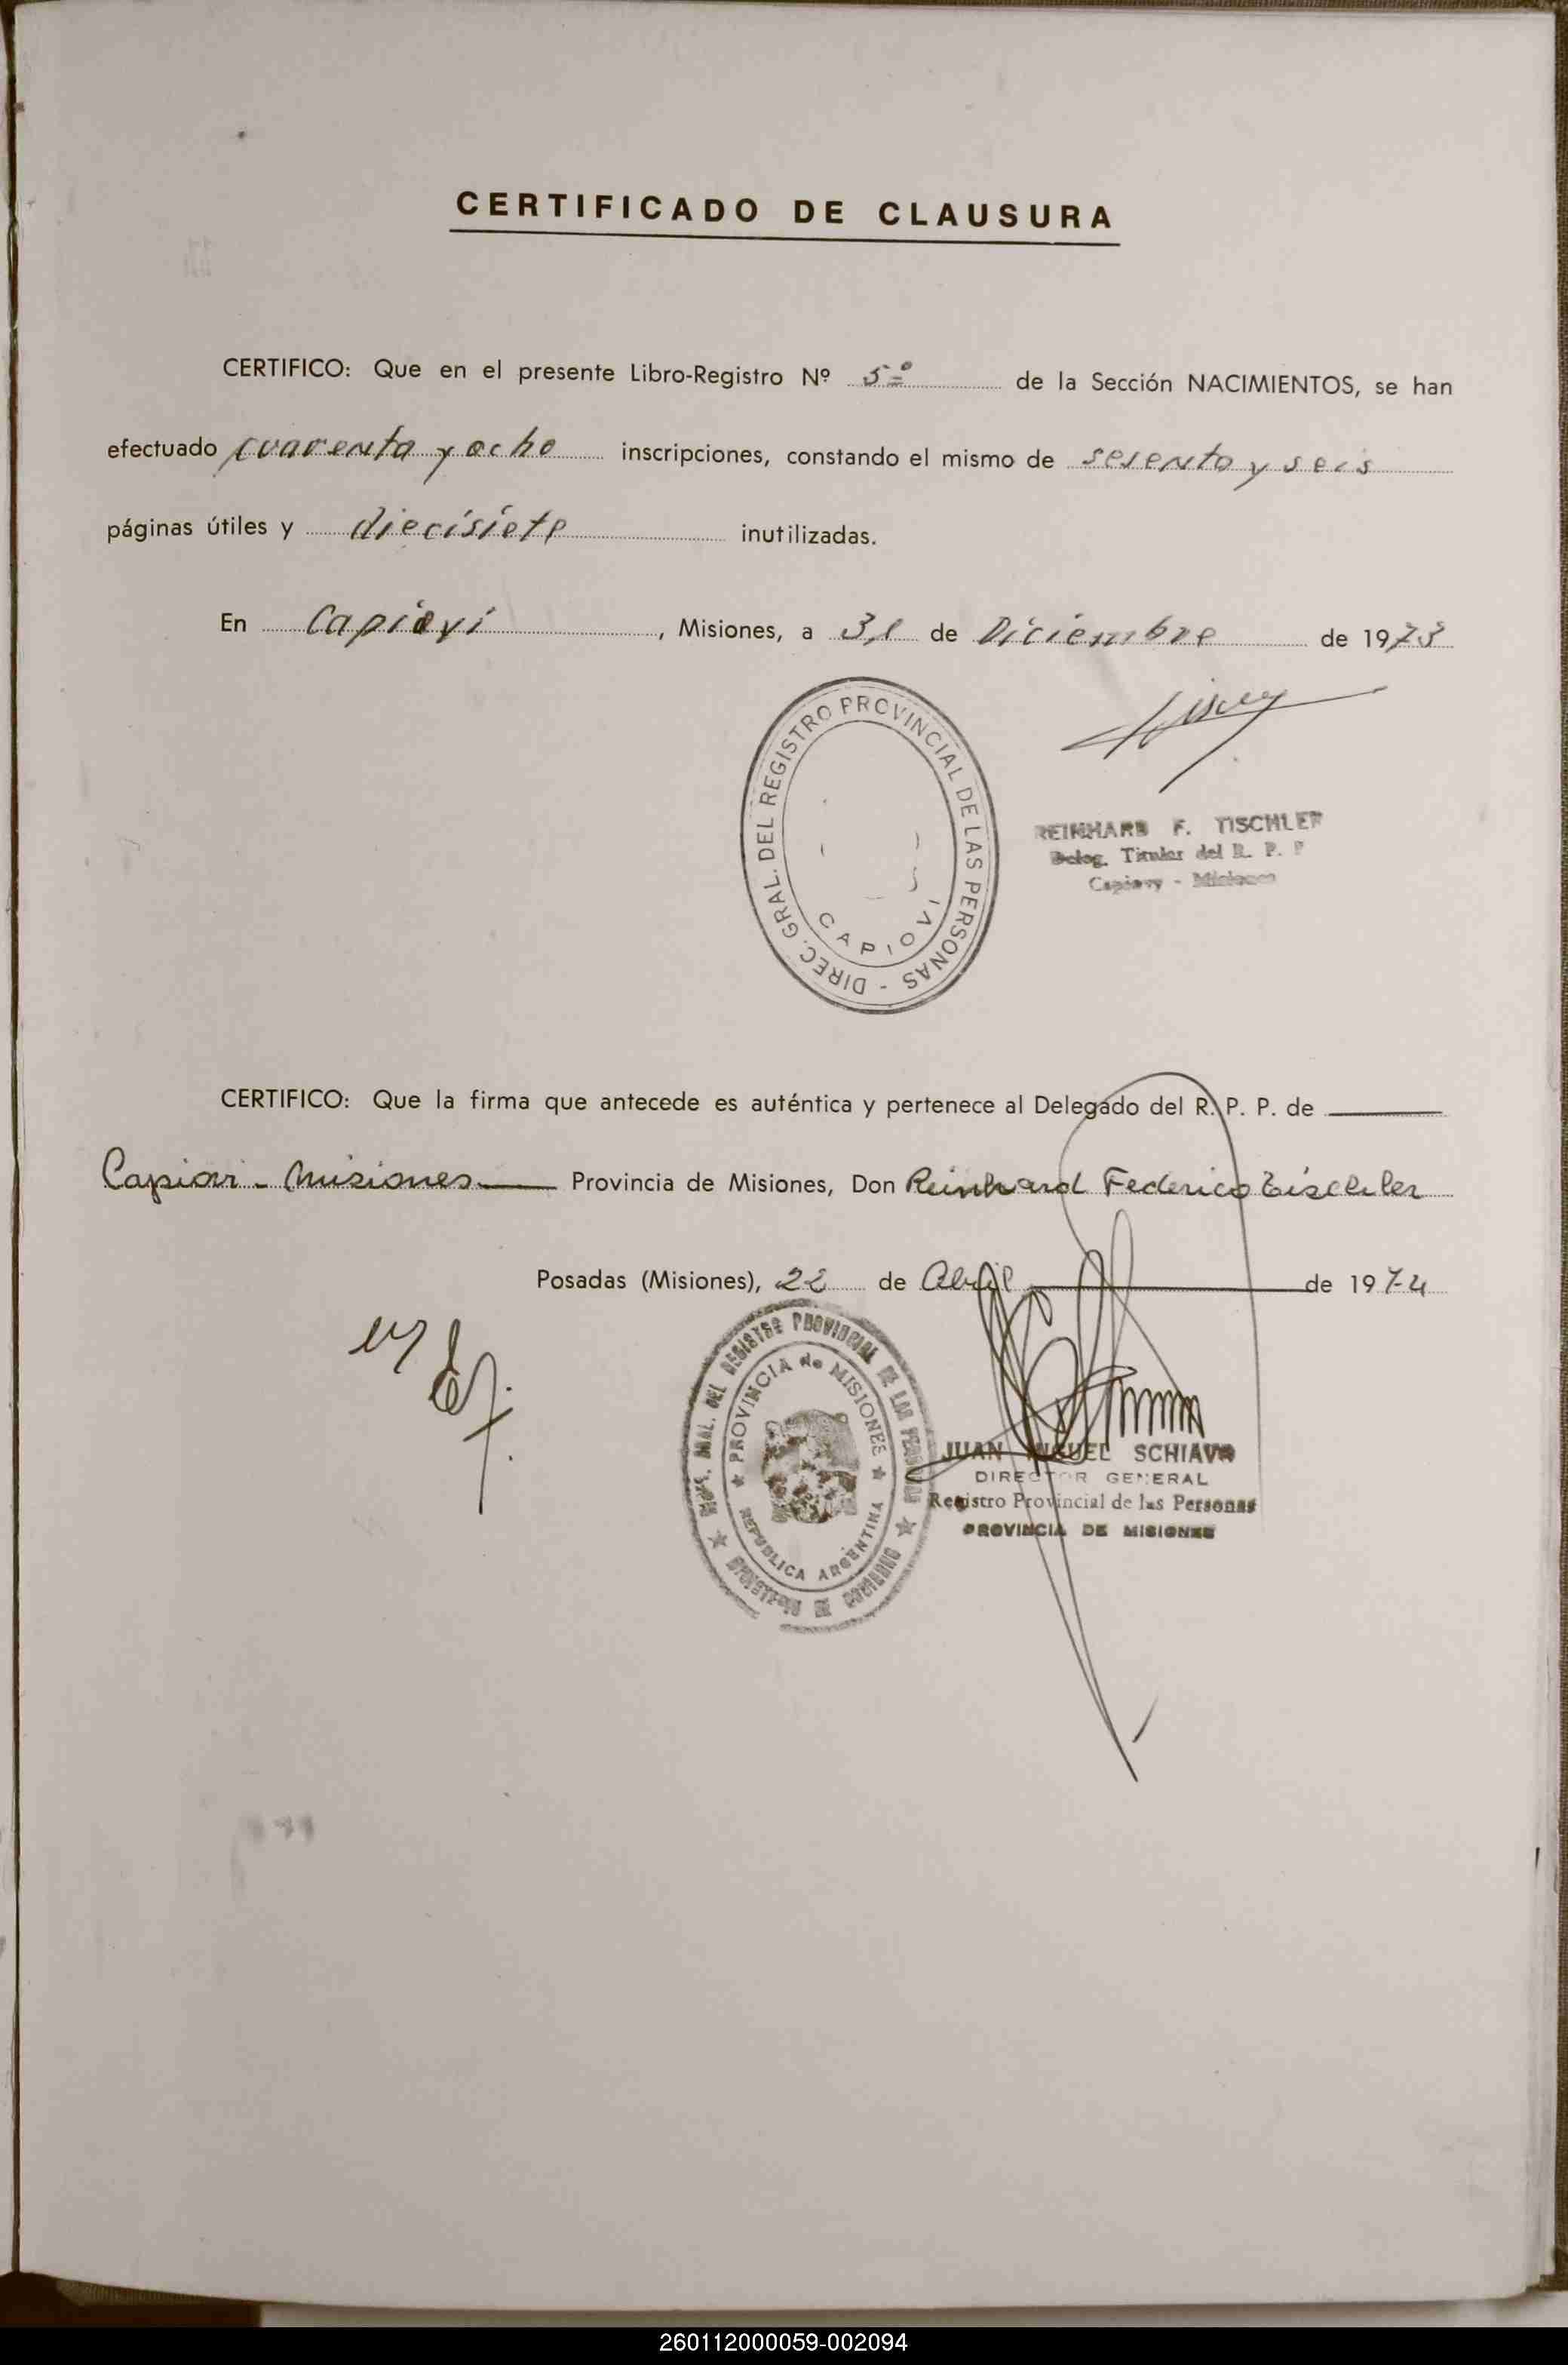 CERTIFICADO DE CLAUSURA
CERTIFICO: Que en el presente Libro-Registro Nº 5º de la Sección NACIMIENTOS, se han
efectuado cuarenta y ocho inscripciones, constando el mismo de sesenta y seis
páginas útiles y diecisiete inutilizadas.
En Capioví, Misiones, a 31 de Diciembre de 1973
DIREC. GRAL. DEL REGISTRO PROVINCIAL DE LAS PERSONAS -
CAPIOVI
REINHARD F. TISCHLER
Deleg. Titular del R. P. P
Capiovy - Misiones
CERTIFICO: Que la firma que antecede es auténtica y pertenece al Delegado del R. P. P. de
Capiovi - Misiones Provincia de Misiones, Don Reinhard Federico Tischler
Posadas (Misiones), 22 de Abril de 1974
GRAL. DEL REGISTRO PROVINCIAL DE LAS PERSONAS
MINISTERIO DE GOBIERNO
PROVINCIA de MISIONES
REPUBLICA ARGENTINA
JUAN MIGUEL SCHIAVO
DIRECTOR GENERAL
Registro Provincial de las Personas
PROVINCIA DE MISIONES
260112000059-002094